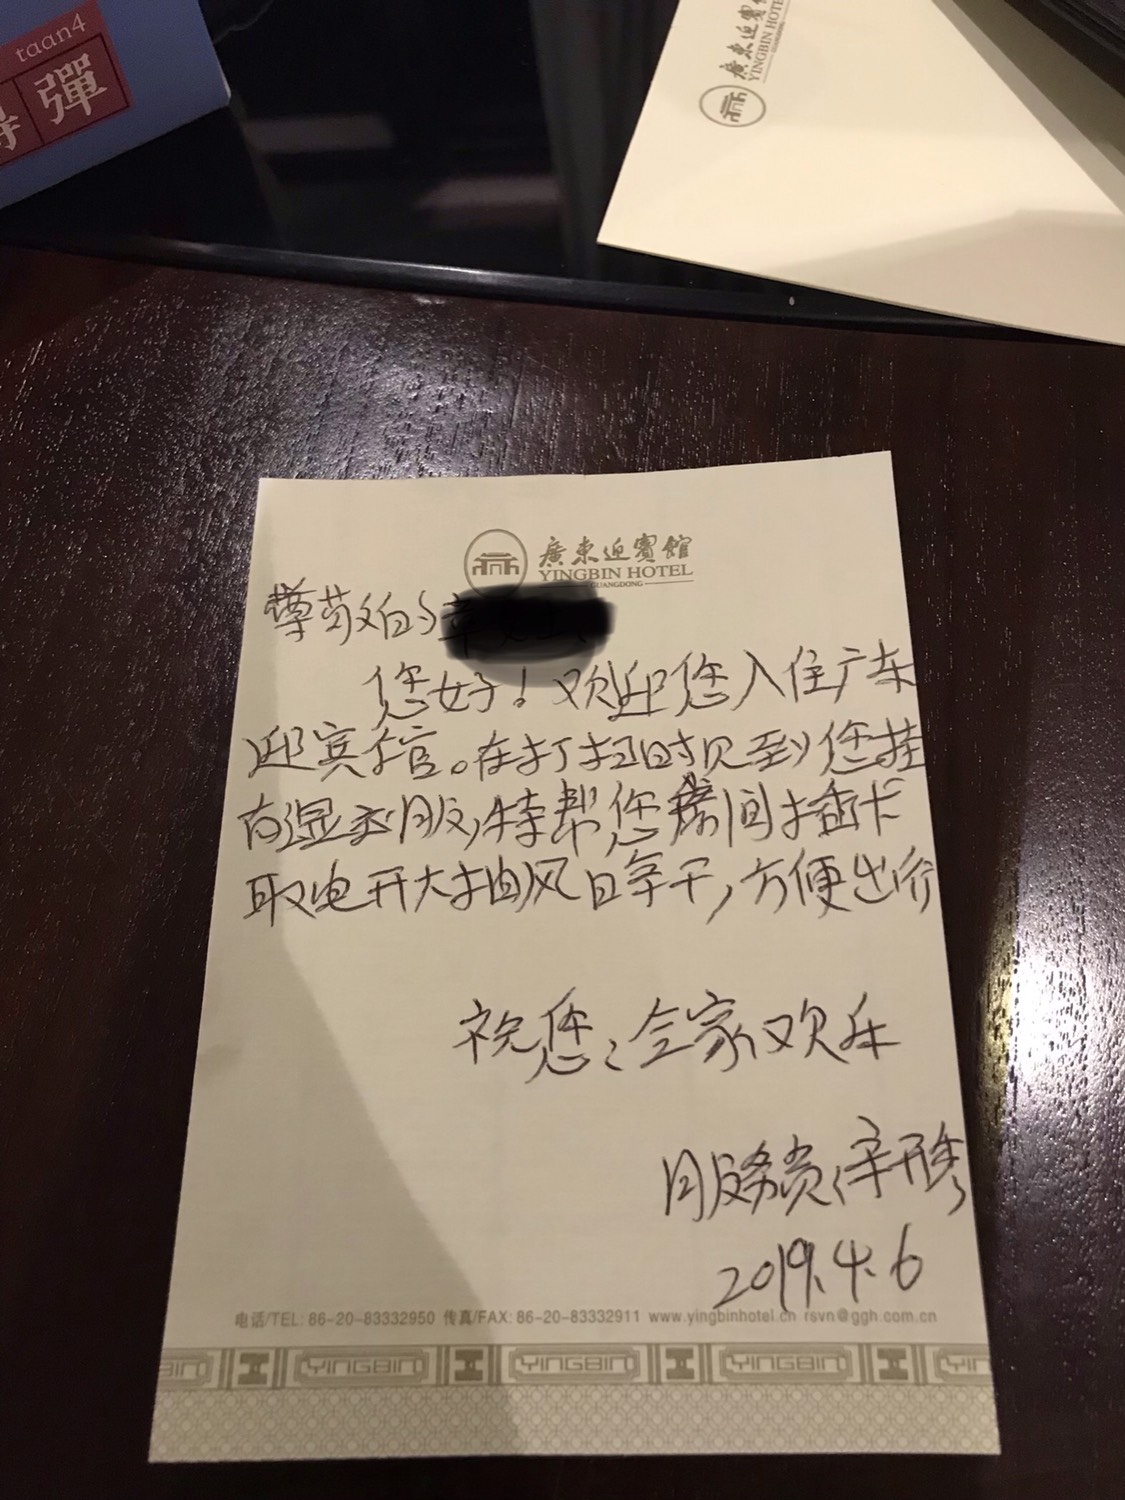 taan4
彈
廣東迎賓館
YINGBIN HOTEL
GUANGDONG
廣東迎賓館
YINGBIN HOTEL
GUANGDONG
尊敬的
您好！欢迎您入住广东
迎宾馆。在打扫时见到您挂
有湿衣服，特帮您房间插卡
取电开大抽风日牵干，方便出行
祝您：全家欢乐
服务员：
2019.4.6
电话/TEL: 86-20-83332950 传真/FAX: 86-20-83332911 www.yingbinhotel.cn rsvn@ggh.com.cn
YINGBIN YINGBIN YINGBIN